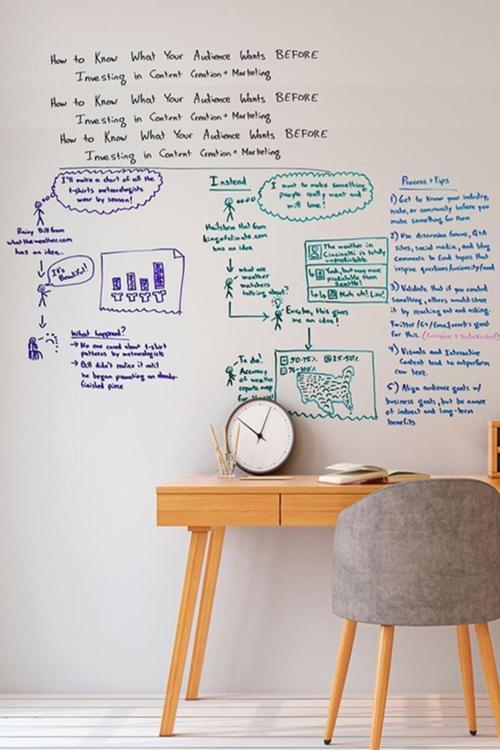 How to Know What Your Audience Wants BEFORE
Investing in Content Creation + Marketing
How to Know What Your Audience Wants BEFORE
Investing in Content Creation + Marketing
How to Know What Your Audience Wants BEFORE
Investing in Content Creation + Marketing
I'll make a chart of all the
t-shirts meteorologists
wear by season!
Rainy Bill from
whattheweather.com
has an idea...
It's
Beautiful!
What happened?
→ No one cared about t-shirt
patterns by meteorologists
→ Bill didn't realize it until
he began promoting an already-
finished piece
Instead
I want to make something
people really want and
will love!
Hailstorm Hal from
kingofclimate.com
has an idea
what are
weather
watchers
talking about?
The weather in
Cincinatti is totally
unpredictable
Yeah, but way more
predictable than
Seattle!
Nuh uh! Liar!
Eureka, this gives
me an idea!
To do:
Accuracy
of weather
reports map
50-75%
25-50%
75-100%
Process + Tips
1) Get to know your industry,
niche, or community before you
make something for them
2) Use discussion forums, Q+A
sites, social media, and blog
comments to find topics that
inspire questions/curiosity/need
3) Validate that if you created
something, others would share
it by creating and asking.
Twitter/G+/Email work great
for this.
4) Visuals and Interactive
Content tend to outperform
raw text.
5) Align audience goals w/
business goals, but be aware
of indirect and long-term
benefits